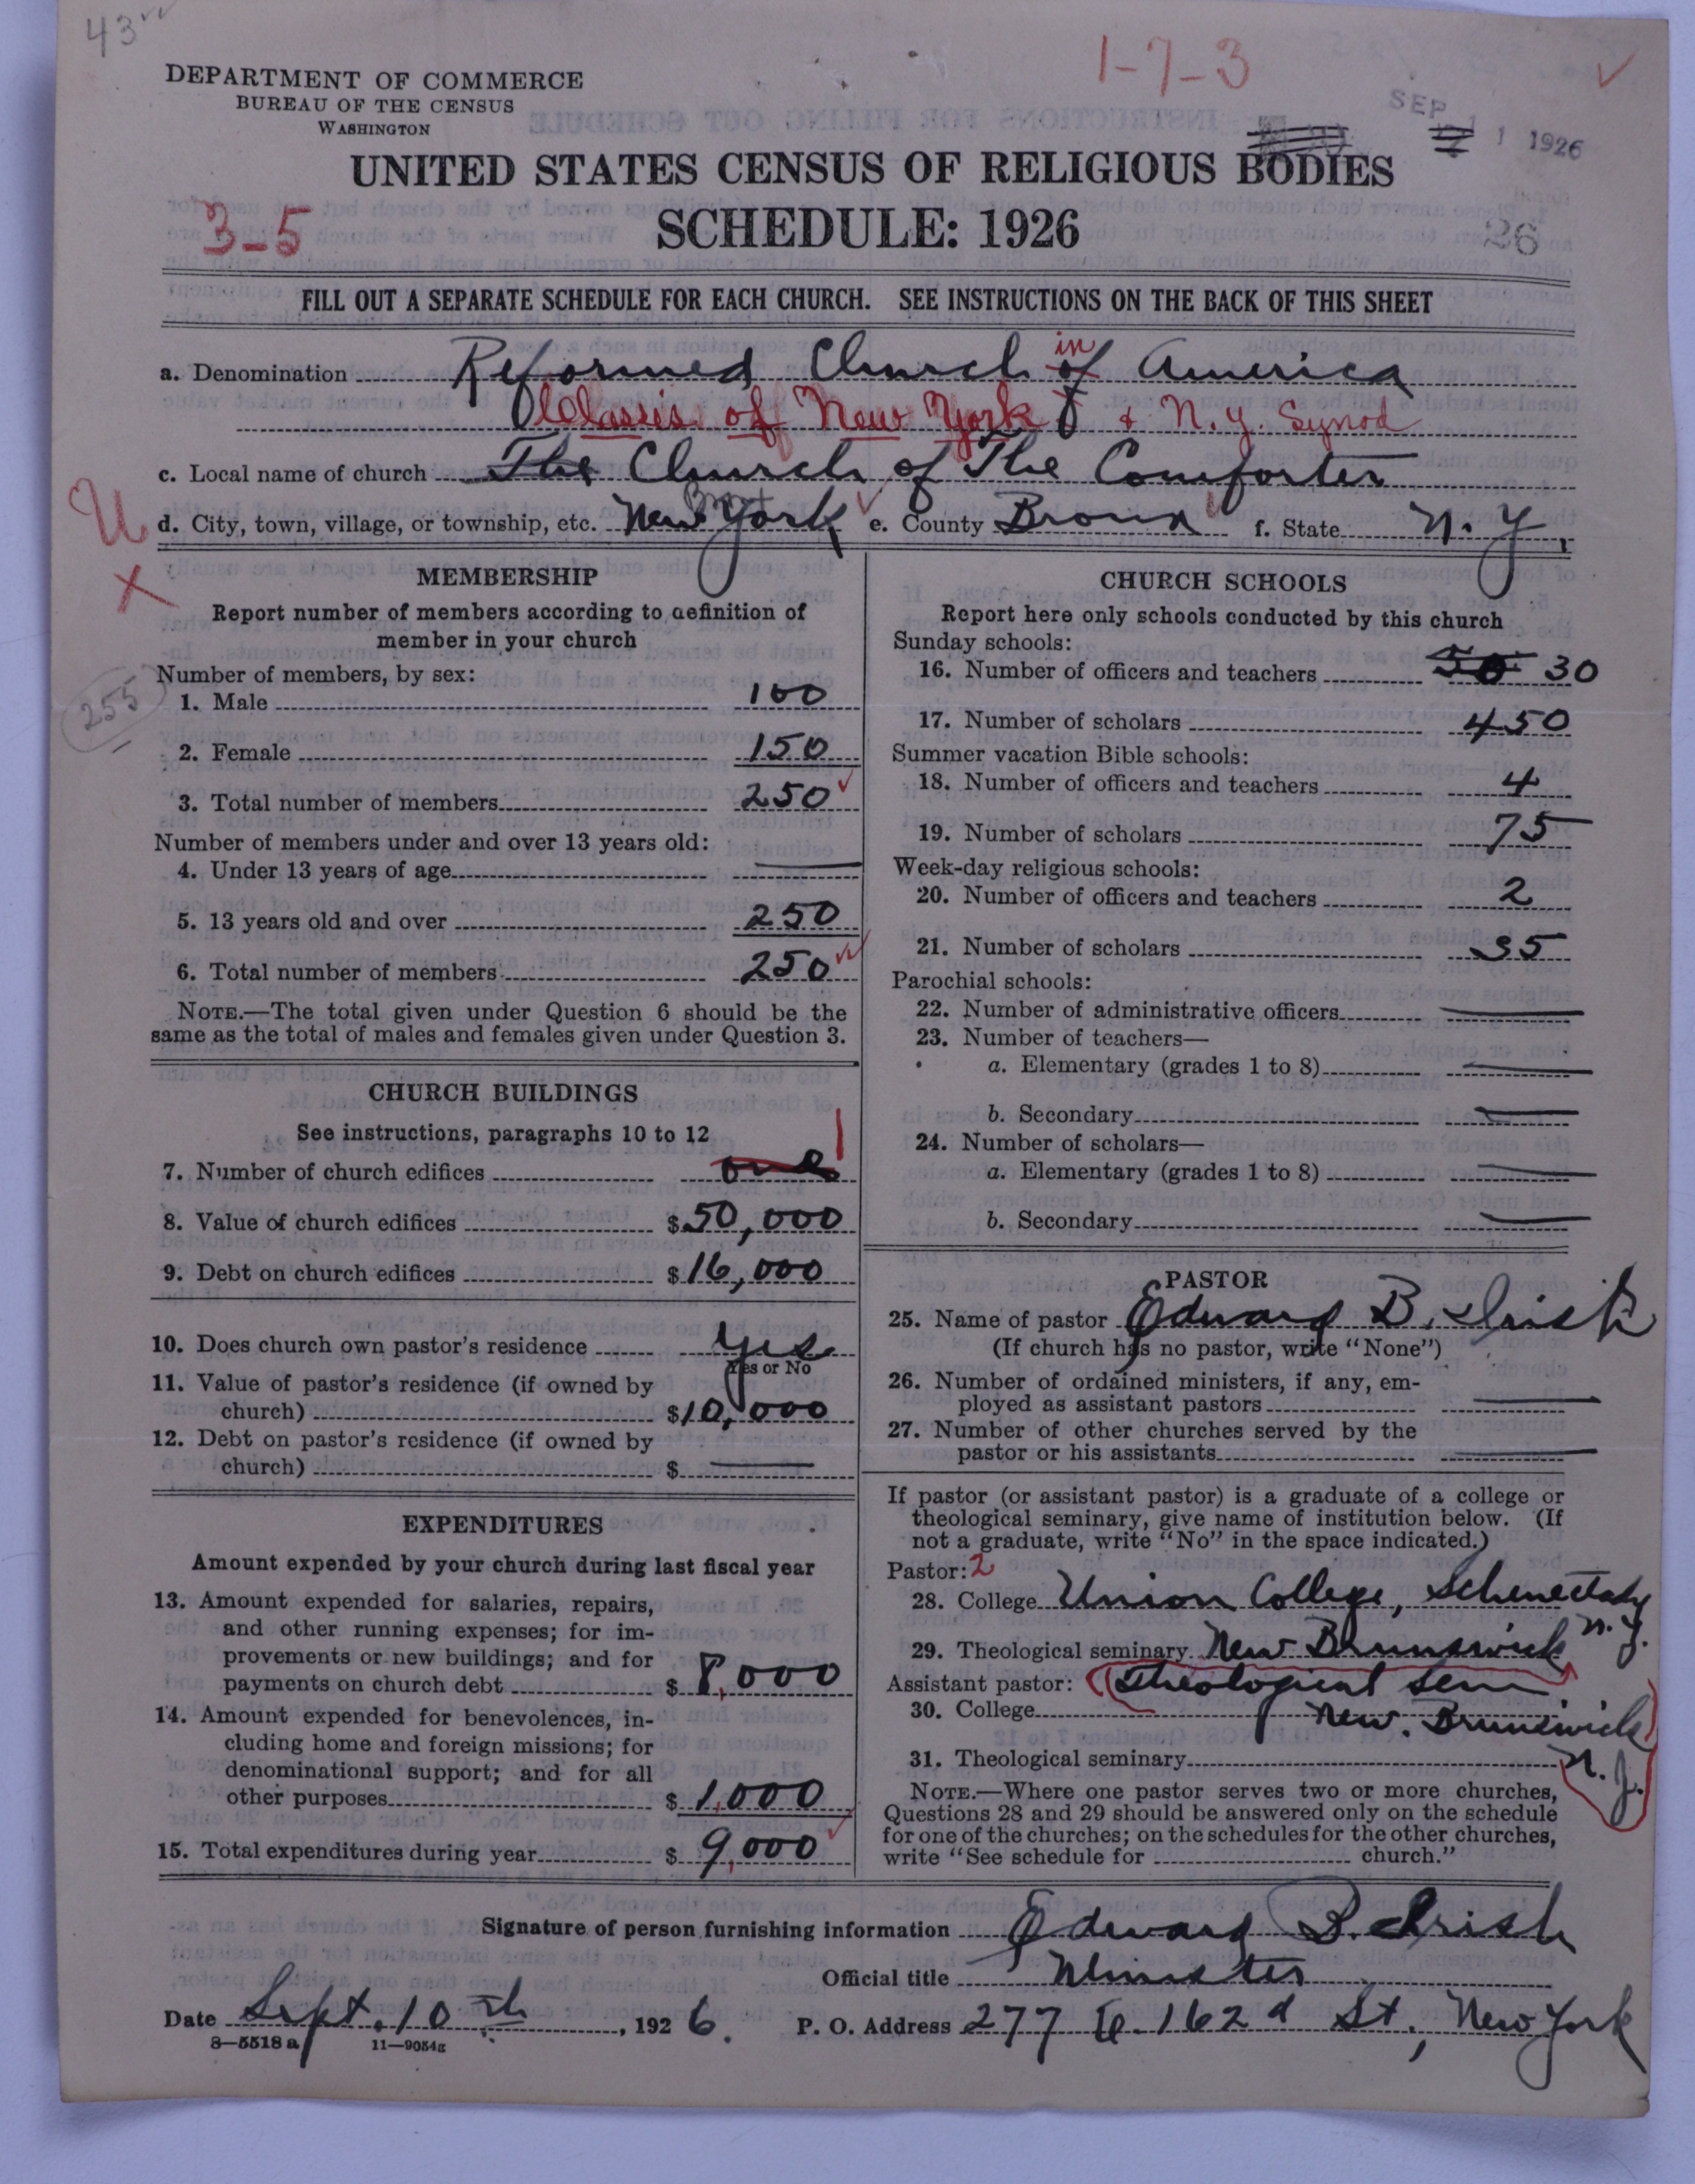 43
1-7-3
DEPARTMENT OF COMMERCE
BUREAU OF THE CENSUS
WASHINGTON
SEP 11 1926
UNITED STATES CENSUS OF RELIGIOUS BODIES
3-5
SCHEDULE: 1926
26
FILL OUT A SEPARATE SCHEDULE FOR EACH CHURCH. SEE INSTRUCTIONS ON THE BACK OF THIS SHEET
a. Denomination Reformed Church of in America
Classis of New York + N.Y. Synod
c. Local name of church The Church of The Comforter
U
d. City, town, village, or township, etc. New York e. County Bronx f. State N.Y.
X
MEMBERSHIP
Report number of members according to definition of
member in your church
Number of members, by sex:
255
1. Male 100
2. Female 150
3. Total number of members 250
Number of members under and over 13 years old:
4. Under 13 years of age
5. 13 years old and over 250
6. Total number of members 250
NOTE.—The total given under Question 6 should be the
same as the total of males and females given under Question 3.
CHURCH BUILDINGS
See instructions, paragraphs 10 to 12
7. Number of church edifices one 1
8. Value of church edifices $50,000
9. Debt on church edifices $16,000
10. Does church own pastor's residence Yes
Yes or No
11. Value of pastor's residence (if owned by
church) $10,000
12. Debt on pastor's residence (if owned by
church) $
EXPENDITURES
Amount expended by your church during last fiscal year
13. Amount expended for salaries, repairs,
and other running expenses; for im-
provements or new buildings; and for
payments on church debt $8,000
14. Amount expended for benevolences, in-
cluding home and foreign missions; for
denominational support; and for all
other purposes $1,000
15. Total expenditures during year $9,000
CHURCH SCHOOLS
Report here only schools conducted by this church
Sunday schools:
16. Number of officers and teachers 50 30
17. Number of scholars 450
Summer vacation Bible schools:
18. Number of officers and teachers 4
19. Number of scholars 75
Week-day religious schools:
20. Number of officers and teachers 2
21. Number of scholars 35
Parochial schools:
22. Number of administrative officers
23. Number of teachers—
a. Elementary (grades 1 to 8)
b. Secondary
24. Number of scholars—
a. Elementary (grades 1 to 8)
b. Secondary
PASTOR
25. Name of pastor Edward B. Irish
(If church has no pastor, write "None")
26. Number of ordained ministers, if any, em-
ployed as assistant pastors
27. Number of other churches served by the
pastor or his assistants
If pastor (or assistant pastor) is a graduate of a college or
theological seminary, give name of institution below. (If
not a graduate, write "No" in the space indicated.)
Pastor: 2
28. College Union College, Schenectady
N.Y.
29. Theological seminary New Brunswick
Assistant pastor: Theological Sem
30. College New Brunswick
31. Theological seminary N.J.
NOTE.—Where one pastor serves two or more churches,
Questions 28 and 29 should be answered only on the schedule
for one of the churches; on the schedules for the other churches,
write "See schedule for church."
Signature of person furnishing information Edward B. Irish
Official title Minister
Date Sept. 10th, 1926. P. O. Address 277 E. 162d St., New York
8—5518 a 11—9054a